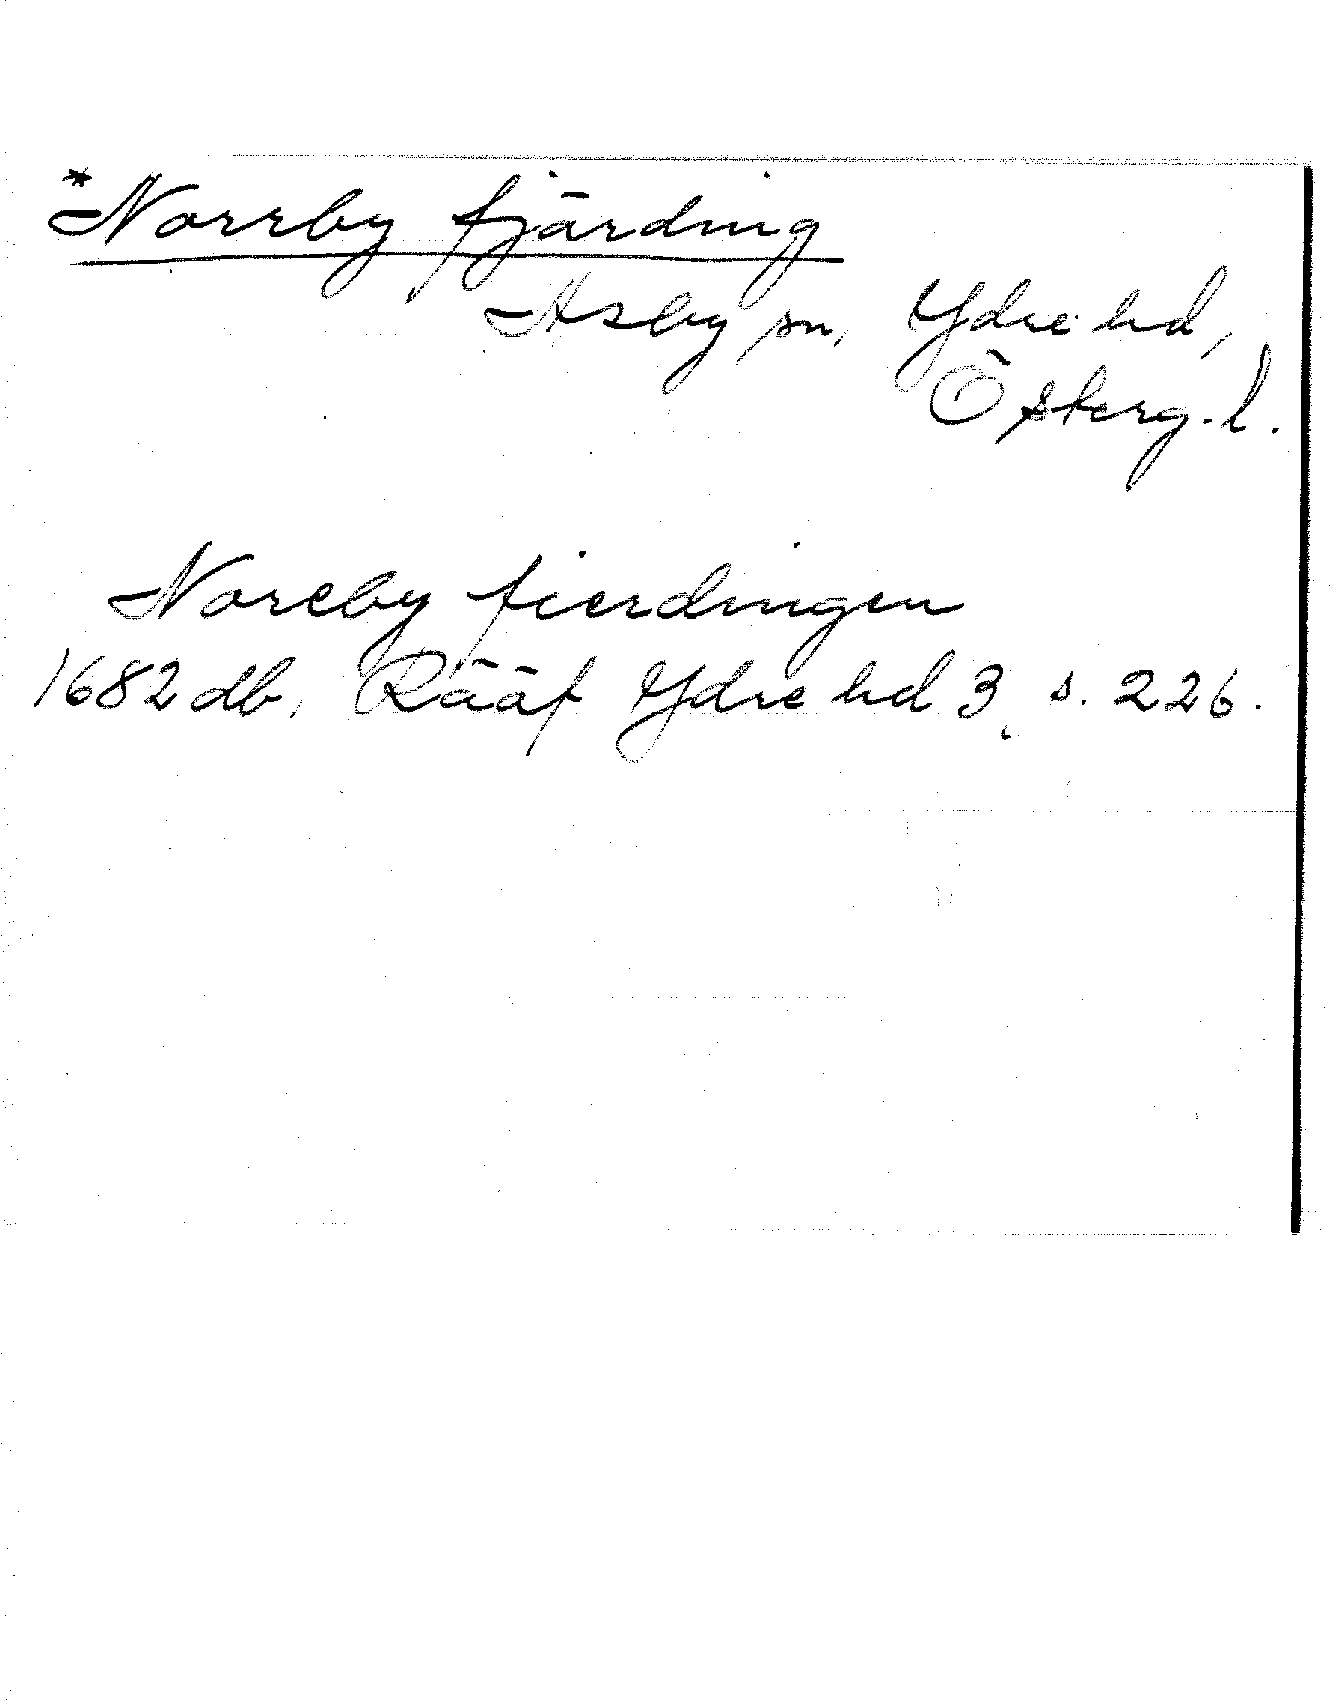 *Norrby fjärding
Asby sn, Ydre hd,
Österg. l.
Noreby fierdingen
1682 db, Rääf Ydre hd 3, s. 226.